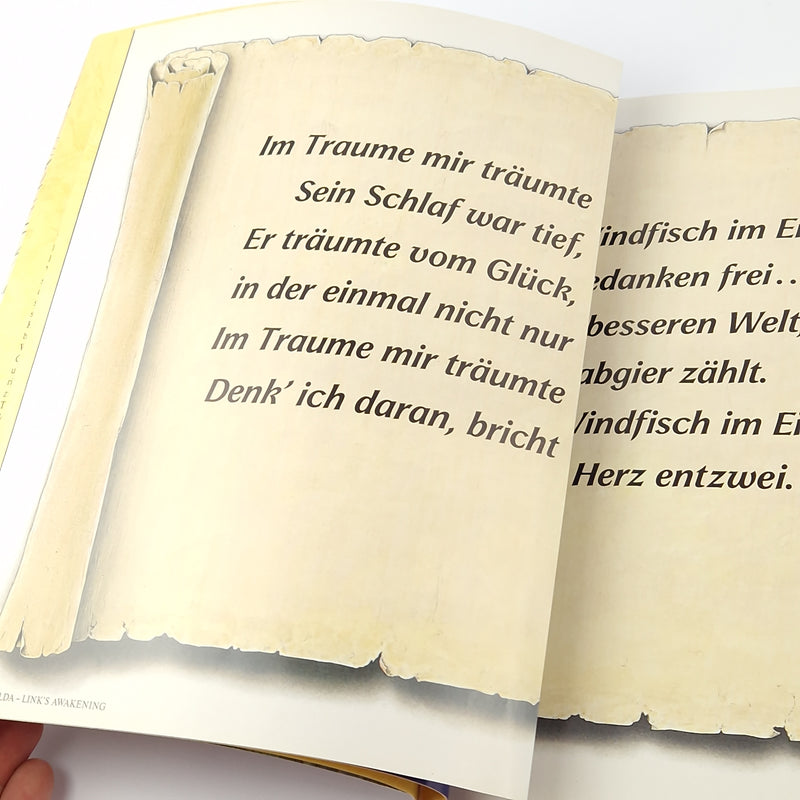 Im Traume mir träumte
Sein Schlaf war tief,
Er träumte vom Glück,
in der einmal nicht nur
Im Traume mir träumte
Denk’ ich daran, bricht
im
frei...
besseren Welt,
zählt.
im
Herz entzwei.
LINK'S AWAKENING